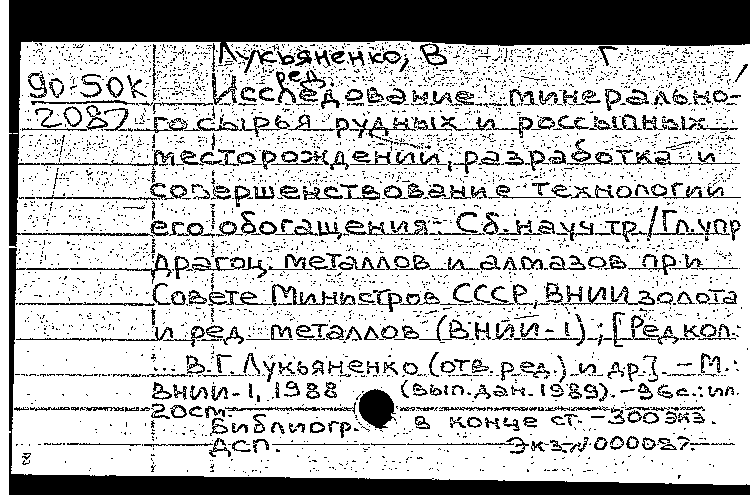 Лукьяненко, В Г
ред.
90-50К Исследование минерально-
2087 го сырья рудных и россыпных
месторождений, разработка и
совершенствование технологии
его обогащения: Сб. науч. тр./Гл. упр
драгоц. металлов и алмазов при
Совете Министров СССР, ВНИИ золота
и ред. металлов (ВНИИ-1); [Редкол.:
... В.Г. Лукьяненко (отв. ред.) и др.]. – М.:
ВНИИ-1, 1988 (вып. дан. 1989). – 96 с.: ил.
20см.
Библиогр. в конце ст. – 300 экз.
ДСП. Экз. N 000087.